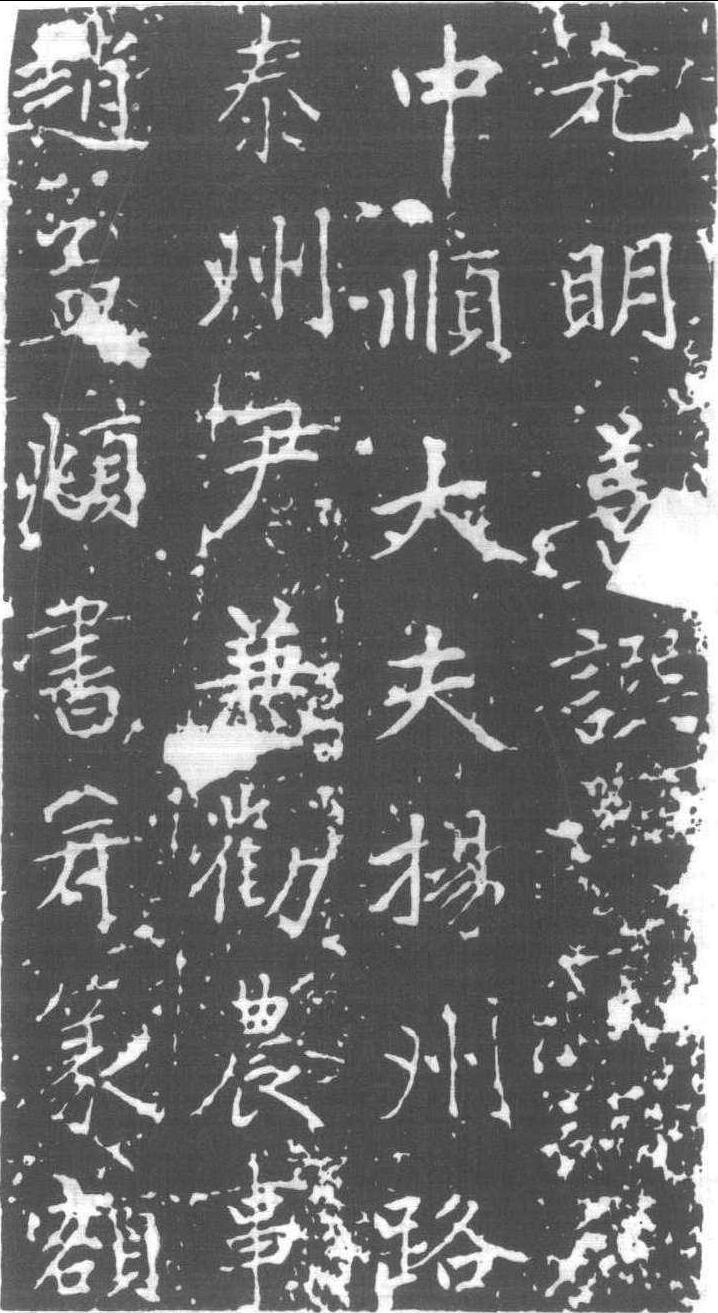 元明善譔
中順大夫揚州路
泰州尹兼勸農事
趙孟頫書并篆額